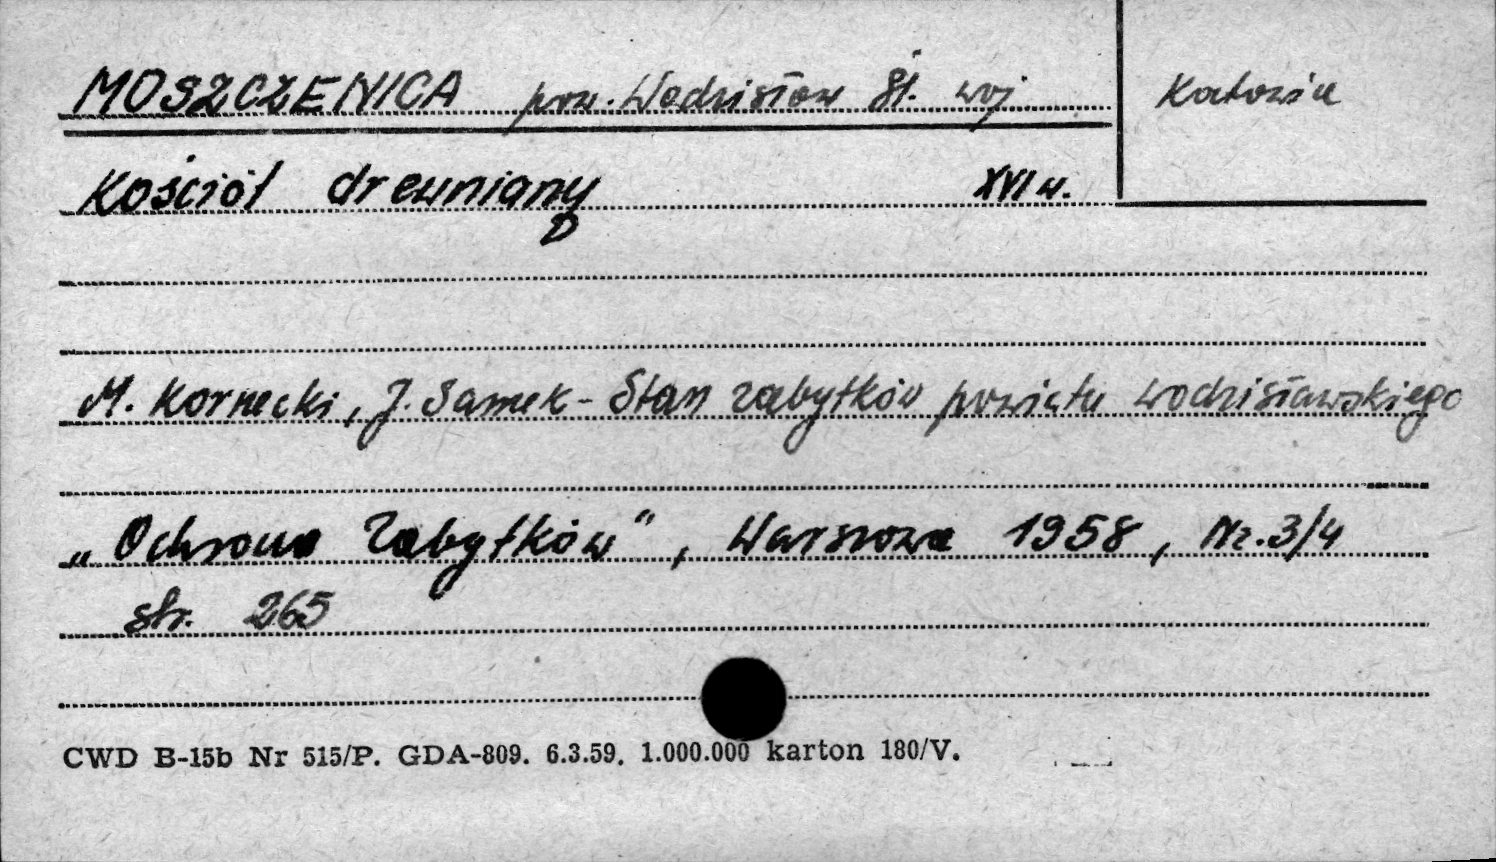 MOSZCZENICA pow. Wodzisław Śl. woj. Katowice
Kościół drewniany XVI w.
D
M. Kornecki, J. Samek - Stan zabytków powiatu wodzisławskiego
„Ochrona Zabytków", Warszawa 1958, Nr. 3/4
str. 265
CWD B-15b Nr 515/P. GDA-809. 6.3.59. 1.000.000 karton 180/V.